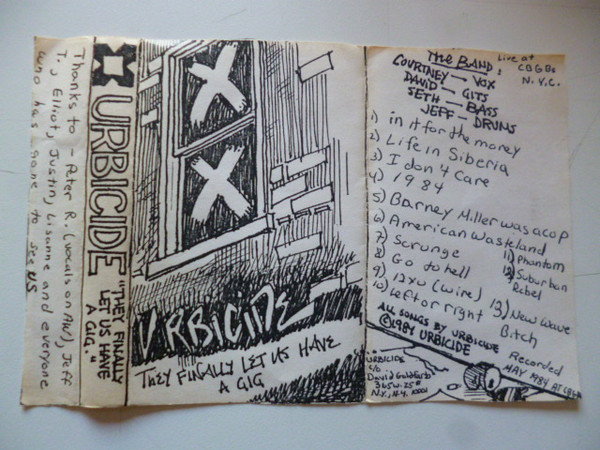 Thanks to - Peter R. (vocals on AW), Jeff
T., Elliot, Justin, Lisanne and everyone
who has gone to see US
URBICIDE
"THEY FINALLY
LET US HAVE
A GIG."
URBICIDE
THEY FINALLY LET US HAVE
A GIG
THE BAND:
COURTNEY — VOX
DAVID — GITS
SETH — BASS
JEFF — DRUMS
Live at
CBGBs
N.Y.C.
1) in it for the money
2) Life in Siberia
3) I don't care
4) 1984
5) Barney Miller was a cop
6) American Wasteland
7) Scrunge
8) Go to hell
9) 12XU (wire)
10) left or right
11) Phantom
12) Suburban
Rebel
13) New Wave
Bitch
ALL SONGS BY URBICIDE
©1984 URBICIDE
Recorded
MAY 1984 AT CBGBs
URBICIDE
c/o
David Goldfarb
365 W. 25th
N.Y., N.Y.